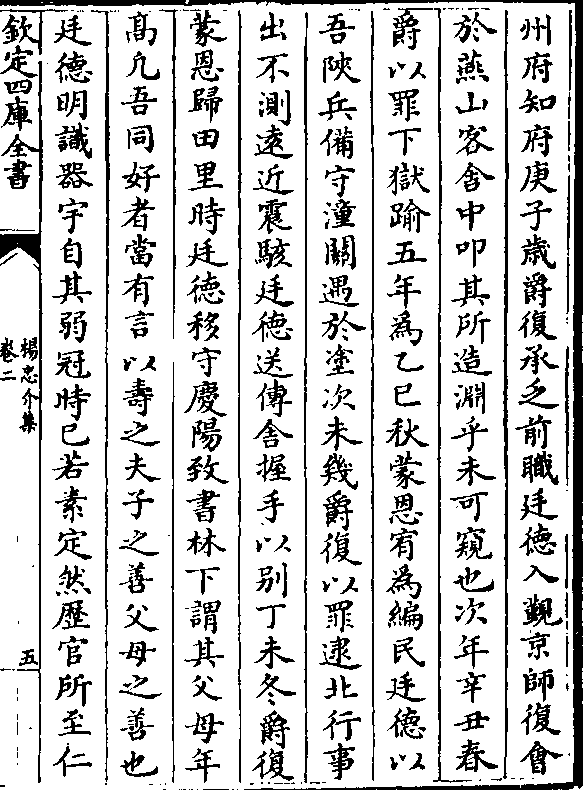 州府知府庚子歳爵復承乏前職廷德入覲京師復會
於燕山客舍中叩其所造淵乎未可窺也次年辛丑春
爵以罪下獄踰五年為乙巳秋蒙恩宥為編民廷德以
吾陜兵備守潼關遇於塗次未幾爵復以罪逮北行事
出不測遠近震駭廷德送傳舍握手以别丁未冬爵復
蒙恩歸田里時廷德移守慶陽致書林下謂其父母年
髙凡吾同好者當有言以壽之夫子之善父母之善也
廷德明識器宇自其弱冠時已若素定然歴官所至仁
欽定四庫全書
楊忠介集
卷二
五